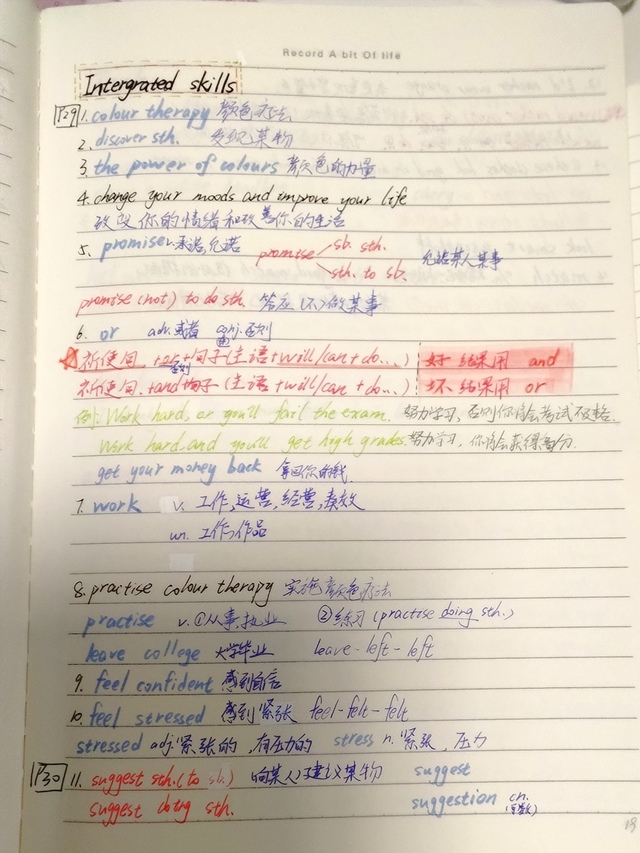 Record A bit Of life
Intergrated skills
P29 1. colour therapy 颜色疗法
2. discover sth. 发现某物
3. the power of colours 颜色的力量
4. change your moods and improve your life
改变你的情绪和改善你的生活
5. promise v. 承诺,允诺 promise sb. sth. 允诺某人某事
sth. to sb.
promise (not) to do sth. 答应(不)做某事
6. or adv. 或者 conj. 否则
祈使句 + or + 句子(主语+will/can+do...) 好结果用 and
否则
祈使句 + and + 句子(主语+will/can+do...) 坏结果用 or
例: Work hard, or you'll fail the exam. 努力学习,否则你将会考试不及格.
Work hard, and you'll get high grades. 努力学习,你将会获得高分.
get your money back 拿回你的钱
7. work v. 工作,运营,经营,奏效
un. 工作,作品
8. practise colour therapy 实施颜色疗法
practise v. ①从事,执业 ②练习(practise doing sth.)
leave college 大学毕业 leave-left-left
9. feel confident 感到自信
10. feel stressed 感到紧张 feel-felt-felt
stressed adj. 紧张的,有压力的 stress n. 紧张,压力
P30 11. suggest sth. (to sb.) 向某人建议某物 suggest
suggest doing sth. suggestion cn.
(可数)
19